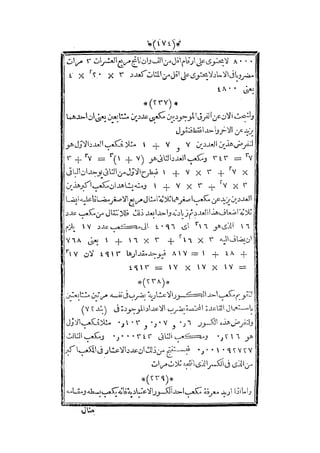 *(١٧٤)*
٨٠٠٠ لا يحتوى على ارقام اقل من الف وان ناتج مربع العشرات ٣ مرات
مضروبا فى الآحاد لا يحتوى على اقل من المئات كعدد ٣ × ٢٠^٢ × ٤
يعنى ٤٨٠٠
*(٢٣٧)*
ولنبحث الآن عن الفرق الموجود بين مكعبى عددين متتابعين يعنى ان احدهما
يزيد عن الآخر واحدا فقط فنقول
لنفرض هذين العددين ٧ و ٧ + ١ مثلا فمكعب العدد الاول هو
٧^٣ = ٣٤٣ ومكعب العدد الثانى هو (٧ + ١)^٣ = ٧^٣ + ٣
× ٧^٢ + ٣ × ٧ + ١ فبطرح الاول من الثانى يوجد ان الباقى
٣ × ٧^٢ + ٣ × ٧ + ١ ومنه يشاهد ان مكعب اكبر هذين
العددين يزيد عن مكعب اصغرهما ثلاثة امثال مربع الاصغر مضافا عليه ايضا
ثلاثة اضعاف هذا العدد ثم زيادة واحد بعد ذلك فلانتقال من مكعب عدد
١٦ الذى هو ١٦^٣ اى ٤٠٩٦ الى مكعب عدد ١٧ يلزم
ان يضاف اليه ٣ × ١٦^٢ + ٣ × ١٦ + ١ يعنى ٧٦٨
+ ٤٨ + ١ = ٨١٧ فيوجد مقدارها ٤٩١٣ لان ١٧^٣
= ١٧ × ١٧ × ١٧ = ٤٩١٣
*(٢٣٨)*
لتقويم مكعب احد الكسور الاعشارية يضرب فى نفسه مرتين متتابعتين
باستعمال القاعدة المختصة بضرب الاعداد الموجودة فى (بند ٧٢)
ولنفرض هذه الكسور ٦ر٠ و ٠٧ر٠ و ١٠٣ر٠ مثلا فمكعب الاول
هو ٢١٦ر٠ ومكعب الثانى ٠٠٠٣٤٣ر٠ ومكعب الثالث
٠٠١٠٩٢٧٢٧ر٠ فيستنتج من ذلك ان عدد الاعشار فى المكعب اكبر
من الذى فى الكسر الذى اخذ ثلاث مرات
*(٢٣٩)*
واما اذا اريد معرفة مكعب احد الكسور الاعتيادية فانه يكعب بسطه ومقامه
مثال